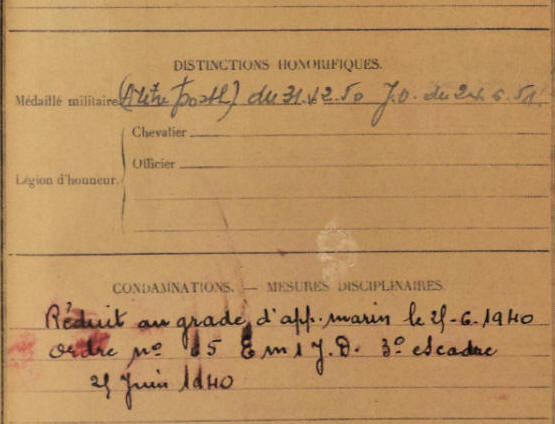 DISTINCTIONS HONORIFIQUES.
Médaillé militaire (à titre posth) du 31.12.50 J.O. du 24.6.51
Chevalier
Officier
Légion d'honneur.
CONDAMNATIONS. — MESURES DISCIPLINAIRES
Réduit au grade d'app. marin le 25-6-1940
Ordre no 65 E m 1 J.D. 3e escadre
25 Juin 1940